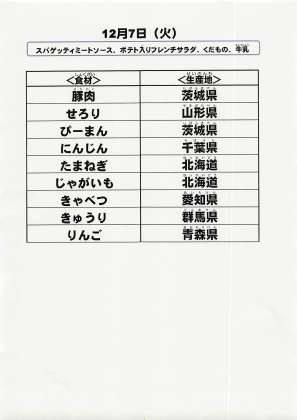 12月7日（火）
スパゲッティミートソース、ポテト入りフレンチサラダ、くだもの、牛乳
＜食材＞ ＜生産地＞
豚肉 茨城県
せろり 山形県
ぴーまん 茨城県
にんじん 千葉県
たまねぎ 北海道
じゃがいも 北海道
きゃべつ 愛知県
きゅうり 群馬県
りんご 青森県